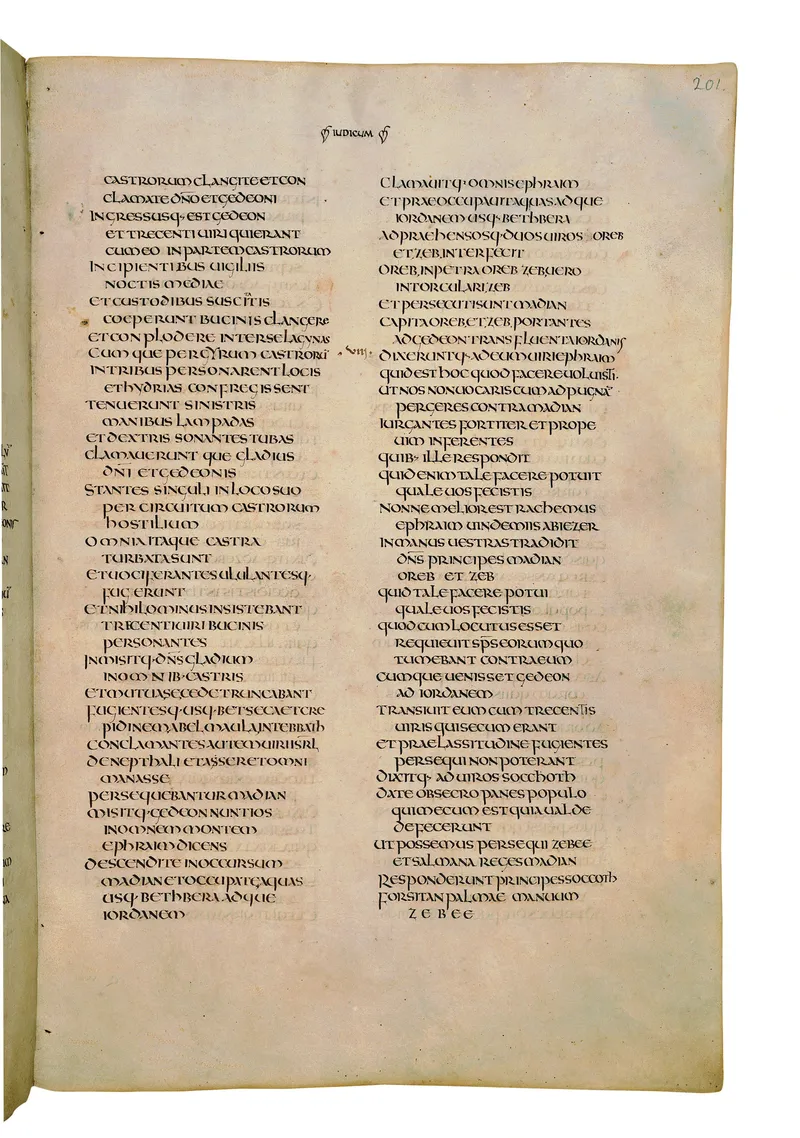 201.
IUDICUM
CASTRORUM CLANGITE ET CON
CLAMATE DÑO ET GEDEONI
INGRESSUSQ· EST GEDEON
ET TRECENTI UIRI QUI ERANT
CUM EO IN PARTEM CASTRORUM
INCIPIENTIBUS UIGILIIS
NOCTIS MEDIAE
ET CUSTODIBUS SUSCITIS
COEPERUNT BUCINIS CLANGERE
ET CONPLODERE INTER SE LAGUNAS
CUMQUE PER GYRUM CASTRORŪ
IN TRIBUS PERSONARENT LOCIS
ET HYDRIAS CONFREGISSENT
TENUERUNT SINISTRIS
MANIBUS LAMPADAS
ET DEXTRIS SONANTES TUBAS
CLAMAUERUNTQUE GLADIUS
DÑI ET GEDEONIS
STANTES SINGULI IN LOCO SUO
PER CIRCUITUM CASTRORUM
HOSTILIUM
OMNIA ITAQUE CASTRA
TURBATA SUNT
ET UOCIFERANTES ULULANTESQ·
FUGERUNT
ET NIHILOMINUS INSISTEBANT
TRECENTI UIRI BUCINIS
PERSONANTES
INMISITQ· DÑS GLADIUM
IN OMNIB· CASTRIS
ET MUTUA SE CEDE TRUNCABANT
FUGIENTESQ· USQ· BETSECA ET CRE
PIDINEM ABELMAULA IN TEBBATH
CONCLAMANTES AUTEM UIRI ISRL
DE NEPTHALI ET ASSER ET OMNI
MANASSE
PERSEQUEBANTUR MADIAN
MISITQ· GEDEON NUNTIOS
IN OMNEM MONTEM
EPHRAIM DICENS
DESCENDITE IN OCCURSUM
MADIAN ET OCCUPATE AQUAS
USQ· BETHBERA ADQUE
IORDANEM
CLAMAUITQ· OMNIS EPHRAIM
ET PRAEOCCUPAUIT AQUAS ADQUE
IORDANEM USQ· BETHBERA
ADPRAEHENSOSQ· DUOS UIROS OREB
ET ZEB, INTERFECIT
OREB, IN PETRA OREB ZEB, UERO
IN TORCULARI, ZEB
ET PERSECUTI SUNT MADIAN
CAPITA OREB, ET, ZEB, PORTANTES
AD GEDEON TRANS FLUENTA IORDANIS
·VIII·
DIXERUNTQ· AD EUM UIRI EPHRAIM
QUID EST HOC QUOD FACERE UOLUISTI·
UT NOS NON UOCARIS CUM AD PUGNĀ
PERGERES CONTRA MADIAN
IURGANTES FORTITER ET PROPE
UIM INFERENTES
QUIB· ILLE RESPONDIT
QUID ENIM TALE FACERE POTUIT
QUALE UOS FECISTIS
NONNE MELIOR EST RACHEMUS
EPHRAIM UINDEMIIS ABIEZER
IN MANUS UESTRAS TRADIDIT
DÑS PRINCIPES MADIAN
OREB ET ZEB
QUID TALE FACERE POTUI
QUALE UOS FECISTIS
QUOD CUM LOCUTUS ESSET
REQUIEUIT SP̄S EORUM QUO
TUMEBANT CONTRA EUM
CUMQUE UENISSET GEDEON
AD IORDANEM
TRANSIUIT EUM CUM TRECENTIS
UIRIS QUI SECUM ERANT
ET PRAE LASSITUDINE FUGIENTES
PERSEQUI NON POTERANT
DIXITQ· AD UIROS SOCCHOTH
DATE OBSECRO PANES POPULO
QUI MECUM EST QUIA UALDE
DEFECERUNT
UT POSSEMUS PERSEQUI ZEBEE
ET SALMANA REGES MADIAN
RESPONDERUNT PRINCIPES SOCCOTH
FORSITAN PALMAE MANUUM
ZEBEE